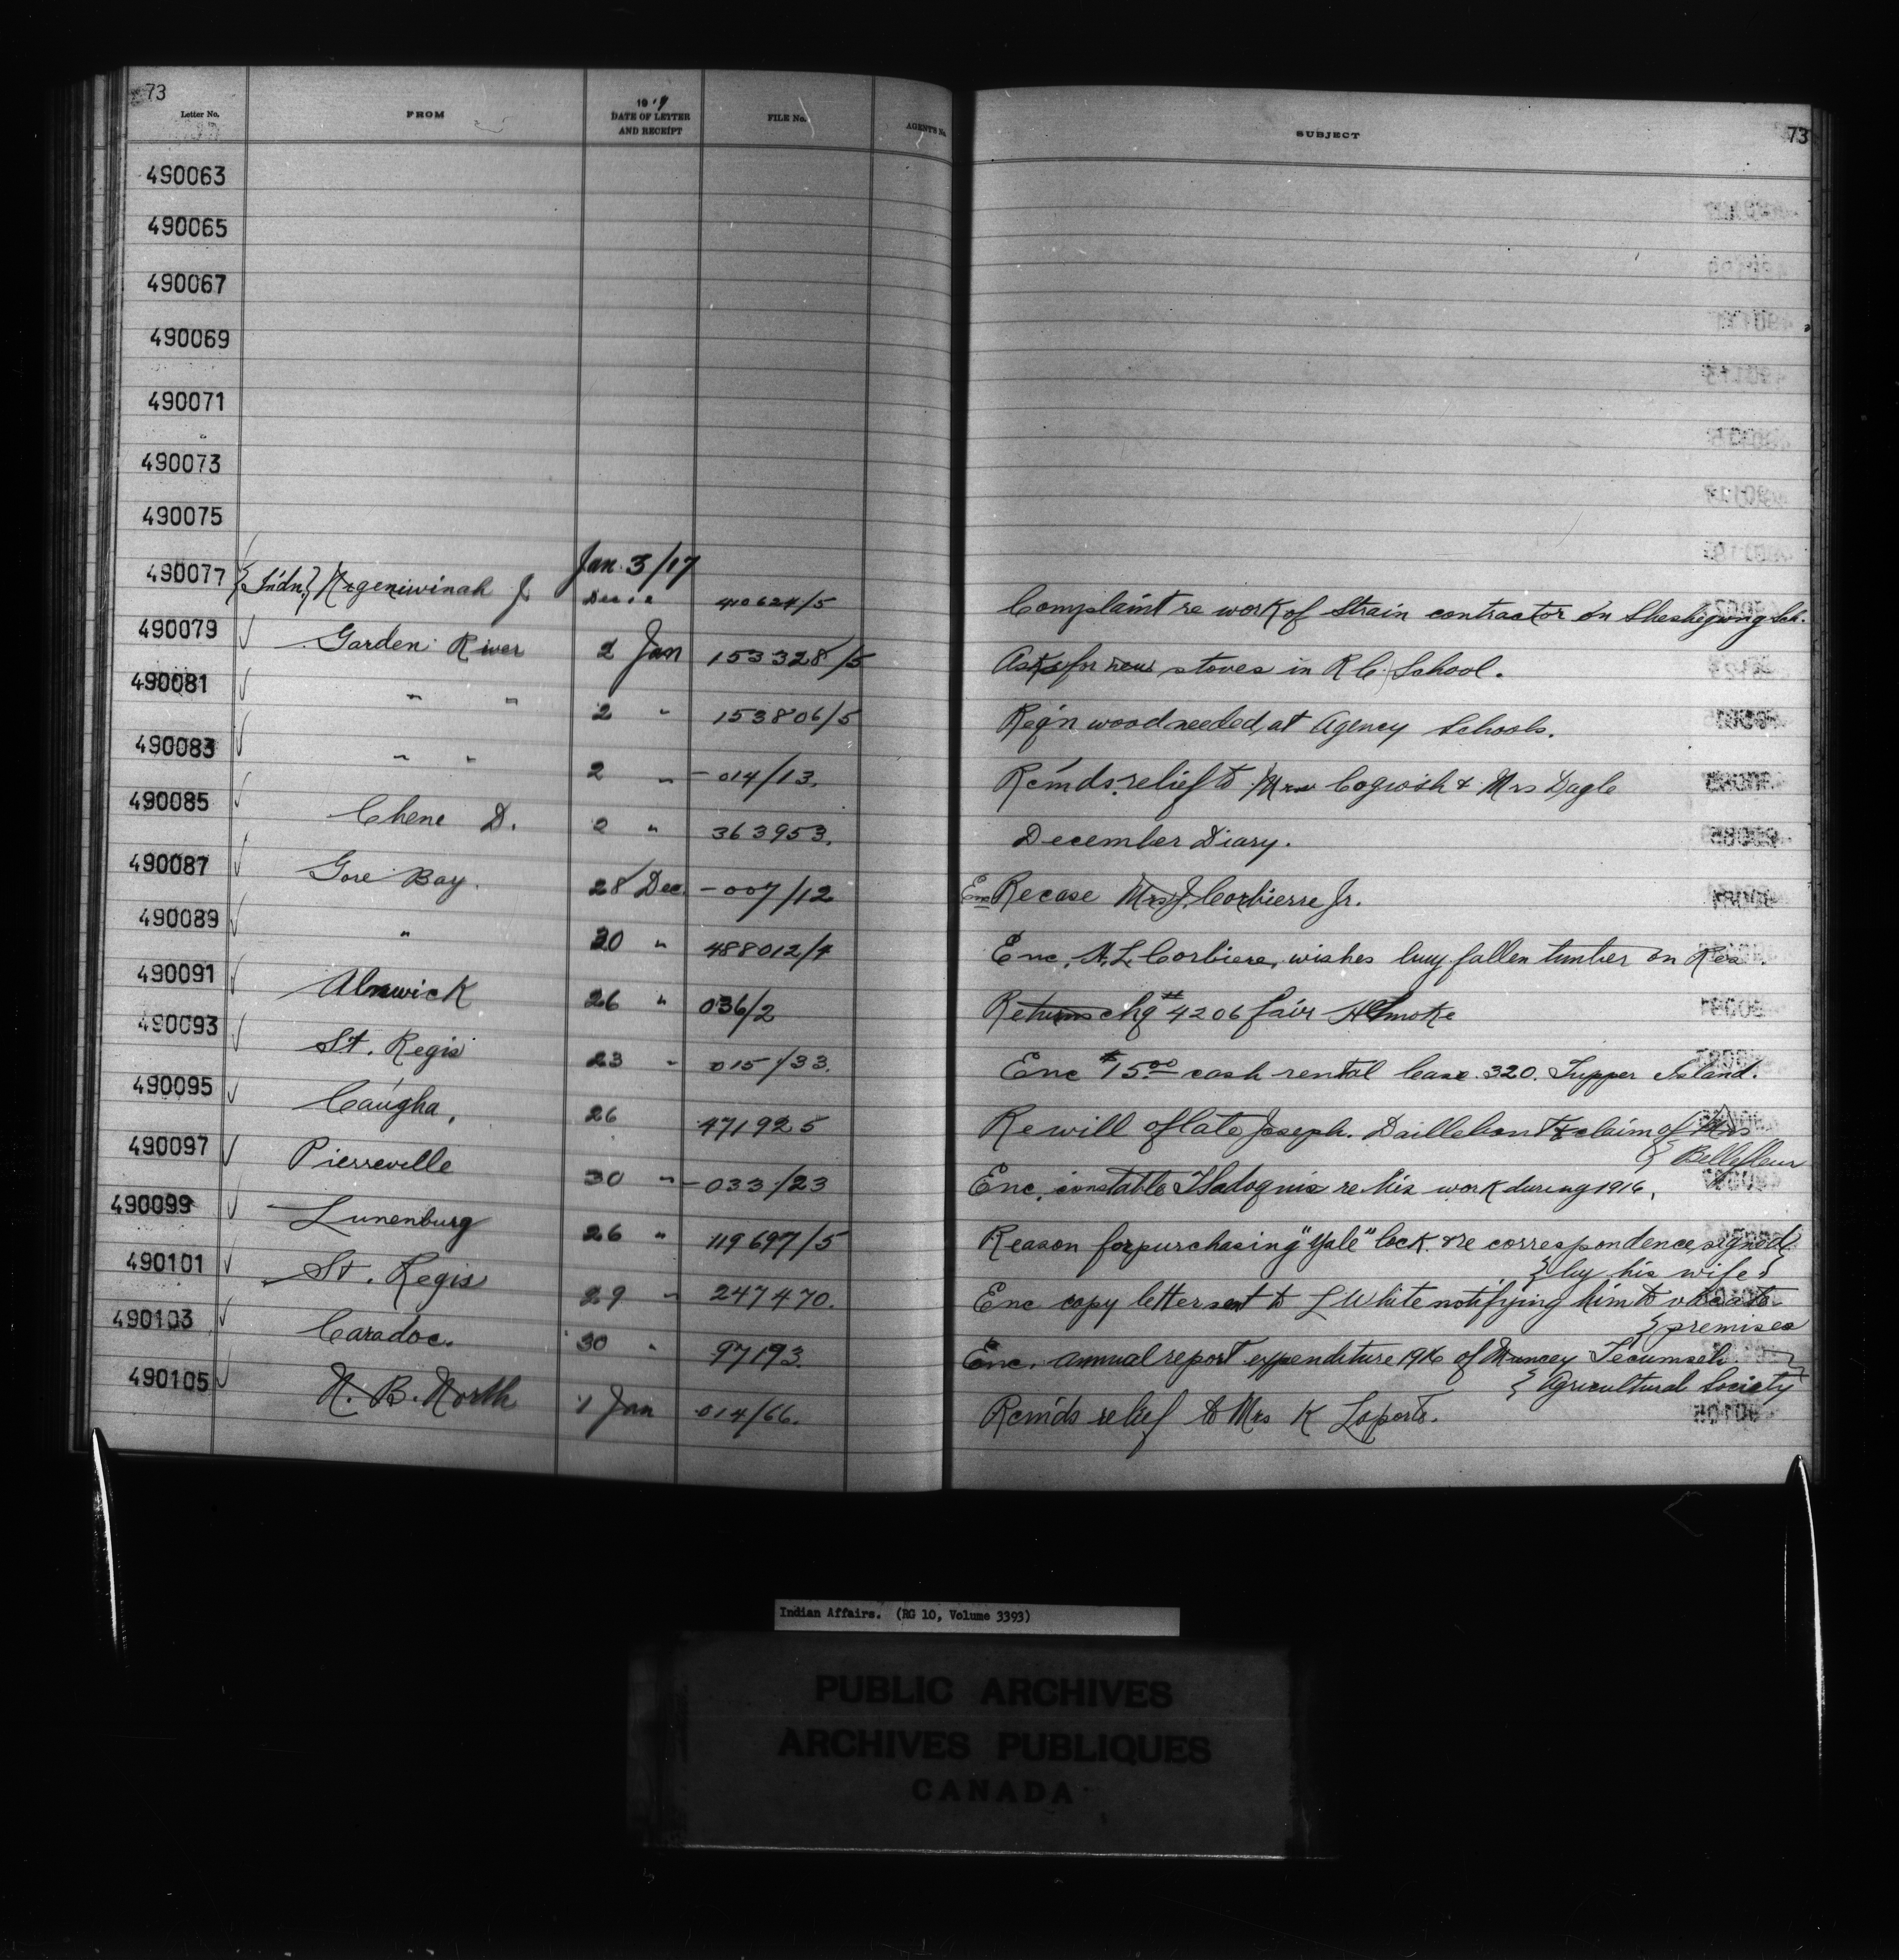 73
73
Letter No. FROM 19 DATE OF LETTER AND RECEIPT FILE No. AGENT'S No. SUBJECT
490063
490065
490067
490069
490071
490073
490075
Jan. 3/17
490077 {Indn.} J 410624/5 Complaint re work of Strain contractor on Sheshegwong Sch.
490079 Garden River 2 Jan 153328/5 Asks for new stoves in R C School.
490081 " " 2 " 153806/5 Reg'n wood needed, at Agency Schools.
490083 " " 2 " - 014/13. Rem'ds relief to Mrs Cogwosh & Mrs Dagle
490085 Chene D. 2 " 363953. December Diary.
490087 Gore Bay. 28 Dec. - 007/12 Enc Re case Mrs J. Corbierre Jr.
490089 " 30 " 488012/4 Enc. H. L. Corbiere, wishes buy fallen timber on Res.
490091 Alnwick 26 " 036/2 Returns chq # 4206 fair Smoke
490093 St. Regis 23 " 015/33. Enc $15.00 cash rental lease 320. Tupper Island.
490095 Caugha. 26 471925 Re will of late Joseph. Daillebout & claim of Mrs
} Bellefleur
490097 Pierreville 30 " - 033/23 Enc. constable re his work during 1916.
490099 Lunenburg 26 " 119697/5 Reason for purchasing "Yale" lock & re correspondence signed
} by his wife }
490101 St. Regis 29 " 247470. Enc copy letter sent to L White notifying him to vacate
} premises
490103 Caradoc. 30 " 97193. Enc. annual report expenditure 1916 of Muncey Tecumseh
} Agricultural Society
490105 N. B. North 1 Jan 014/66. Rem'ds relief to Mrs K Laporte.
Indian Affairs. (RG 10, Volume 3393)
PUBLIC ARCHIVES
ARCHIVES PUBLIQUES
CANADA